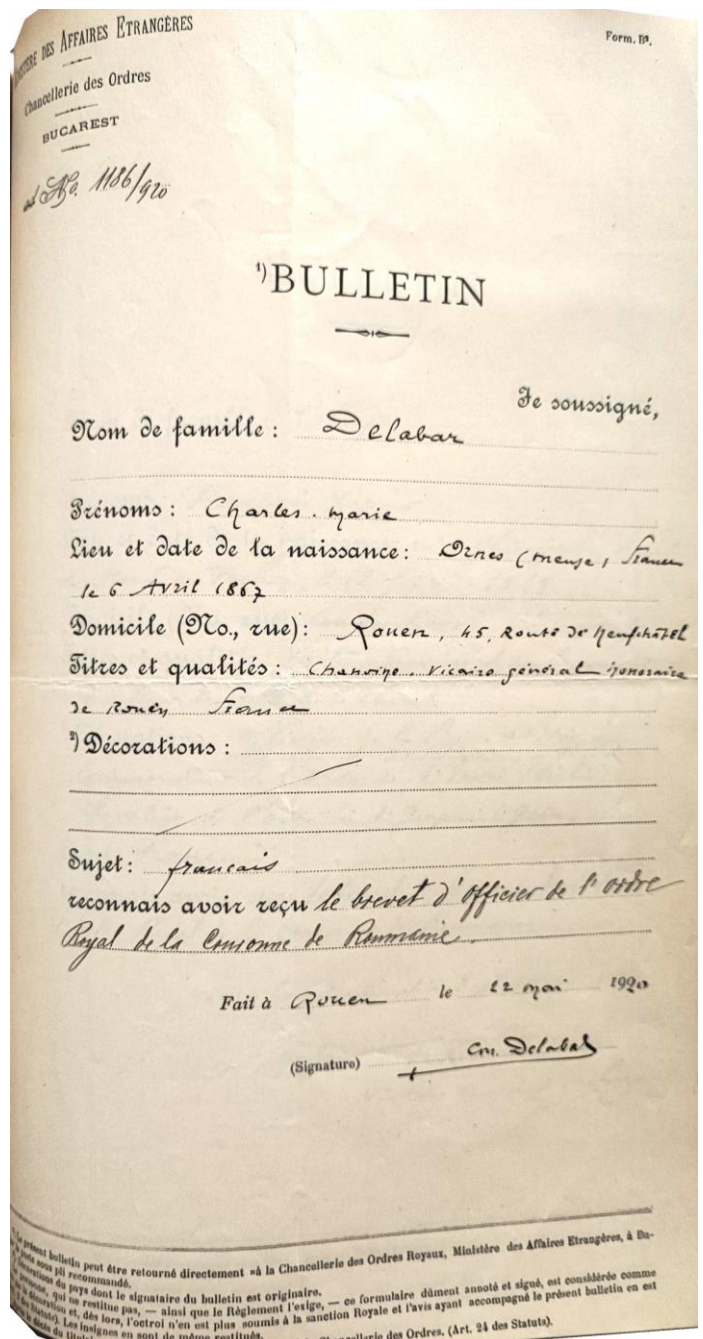 MINISTÈRE DES AFFAIRES ETRANGÈRES
Form. B².
Chancellerie des Ordres
BUCAREST
ad No. 1186/920
¹) BULLETIN
Je soussigné,
Nom de famille : Delabar
Prénoms : Charles. Marie
Lieu et date de la naissance : Ornes (Meuse, France
le 6 Avril 1867
Domicile (No., rue) : Rouen, 45, Route de Neufchâtel
Titres et qualités : Chanoine, Vicaire général honoraire
de Rouen France
²) Décorations :
Sujet : francais
reconnais avoir reçu le brevet d'officier de l'ordre
Royal de la Couronne de Roumanie.
Fait à Rouen le 22 mai 1920
(Signature) Delabar
présent bulletin peut être retourné directement »à la Chancellerie des Ordres Royaux, Ministère des Affaires Etrangères, à Bu-
sous pli recommandé.
décorations du pays dont le signataire du bulletin est originaire.
qui ne restitue pas, — ainsi que le Règlement l'exige, — ce formulaire dûment annoté et signé, est considérée comme
décoration et, dès lors, l'octroi n'en est plus soumis à la sanction Royale et l'avis ayant accompagné le présent bulletin en est
Les insignes en sont de même restitués.
Chancellerie des Ordres. (Art. 24 des Statuts).